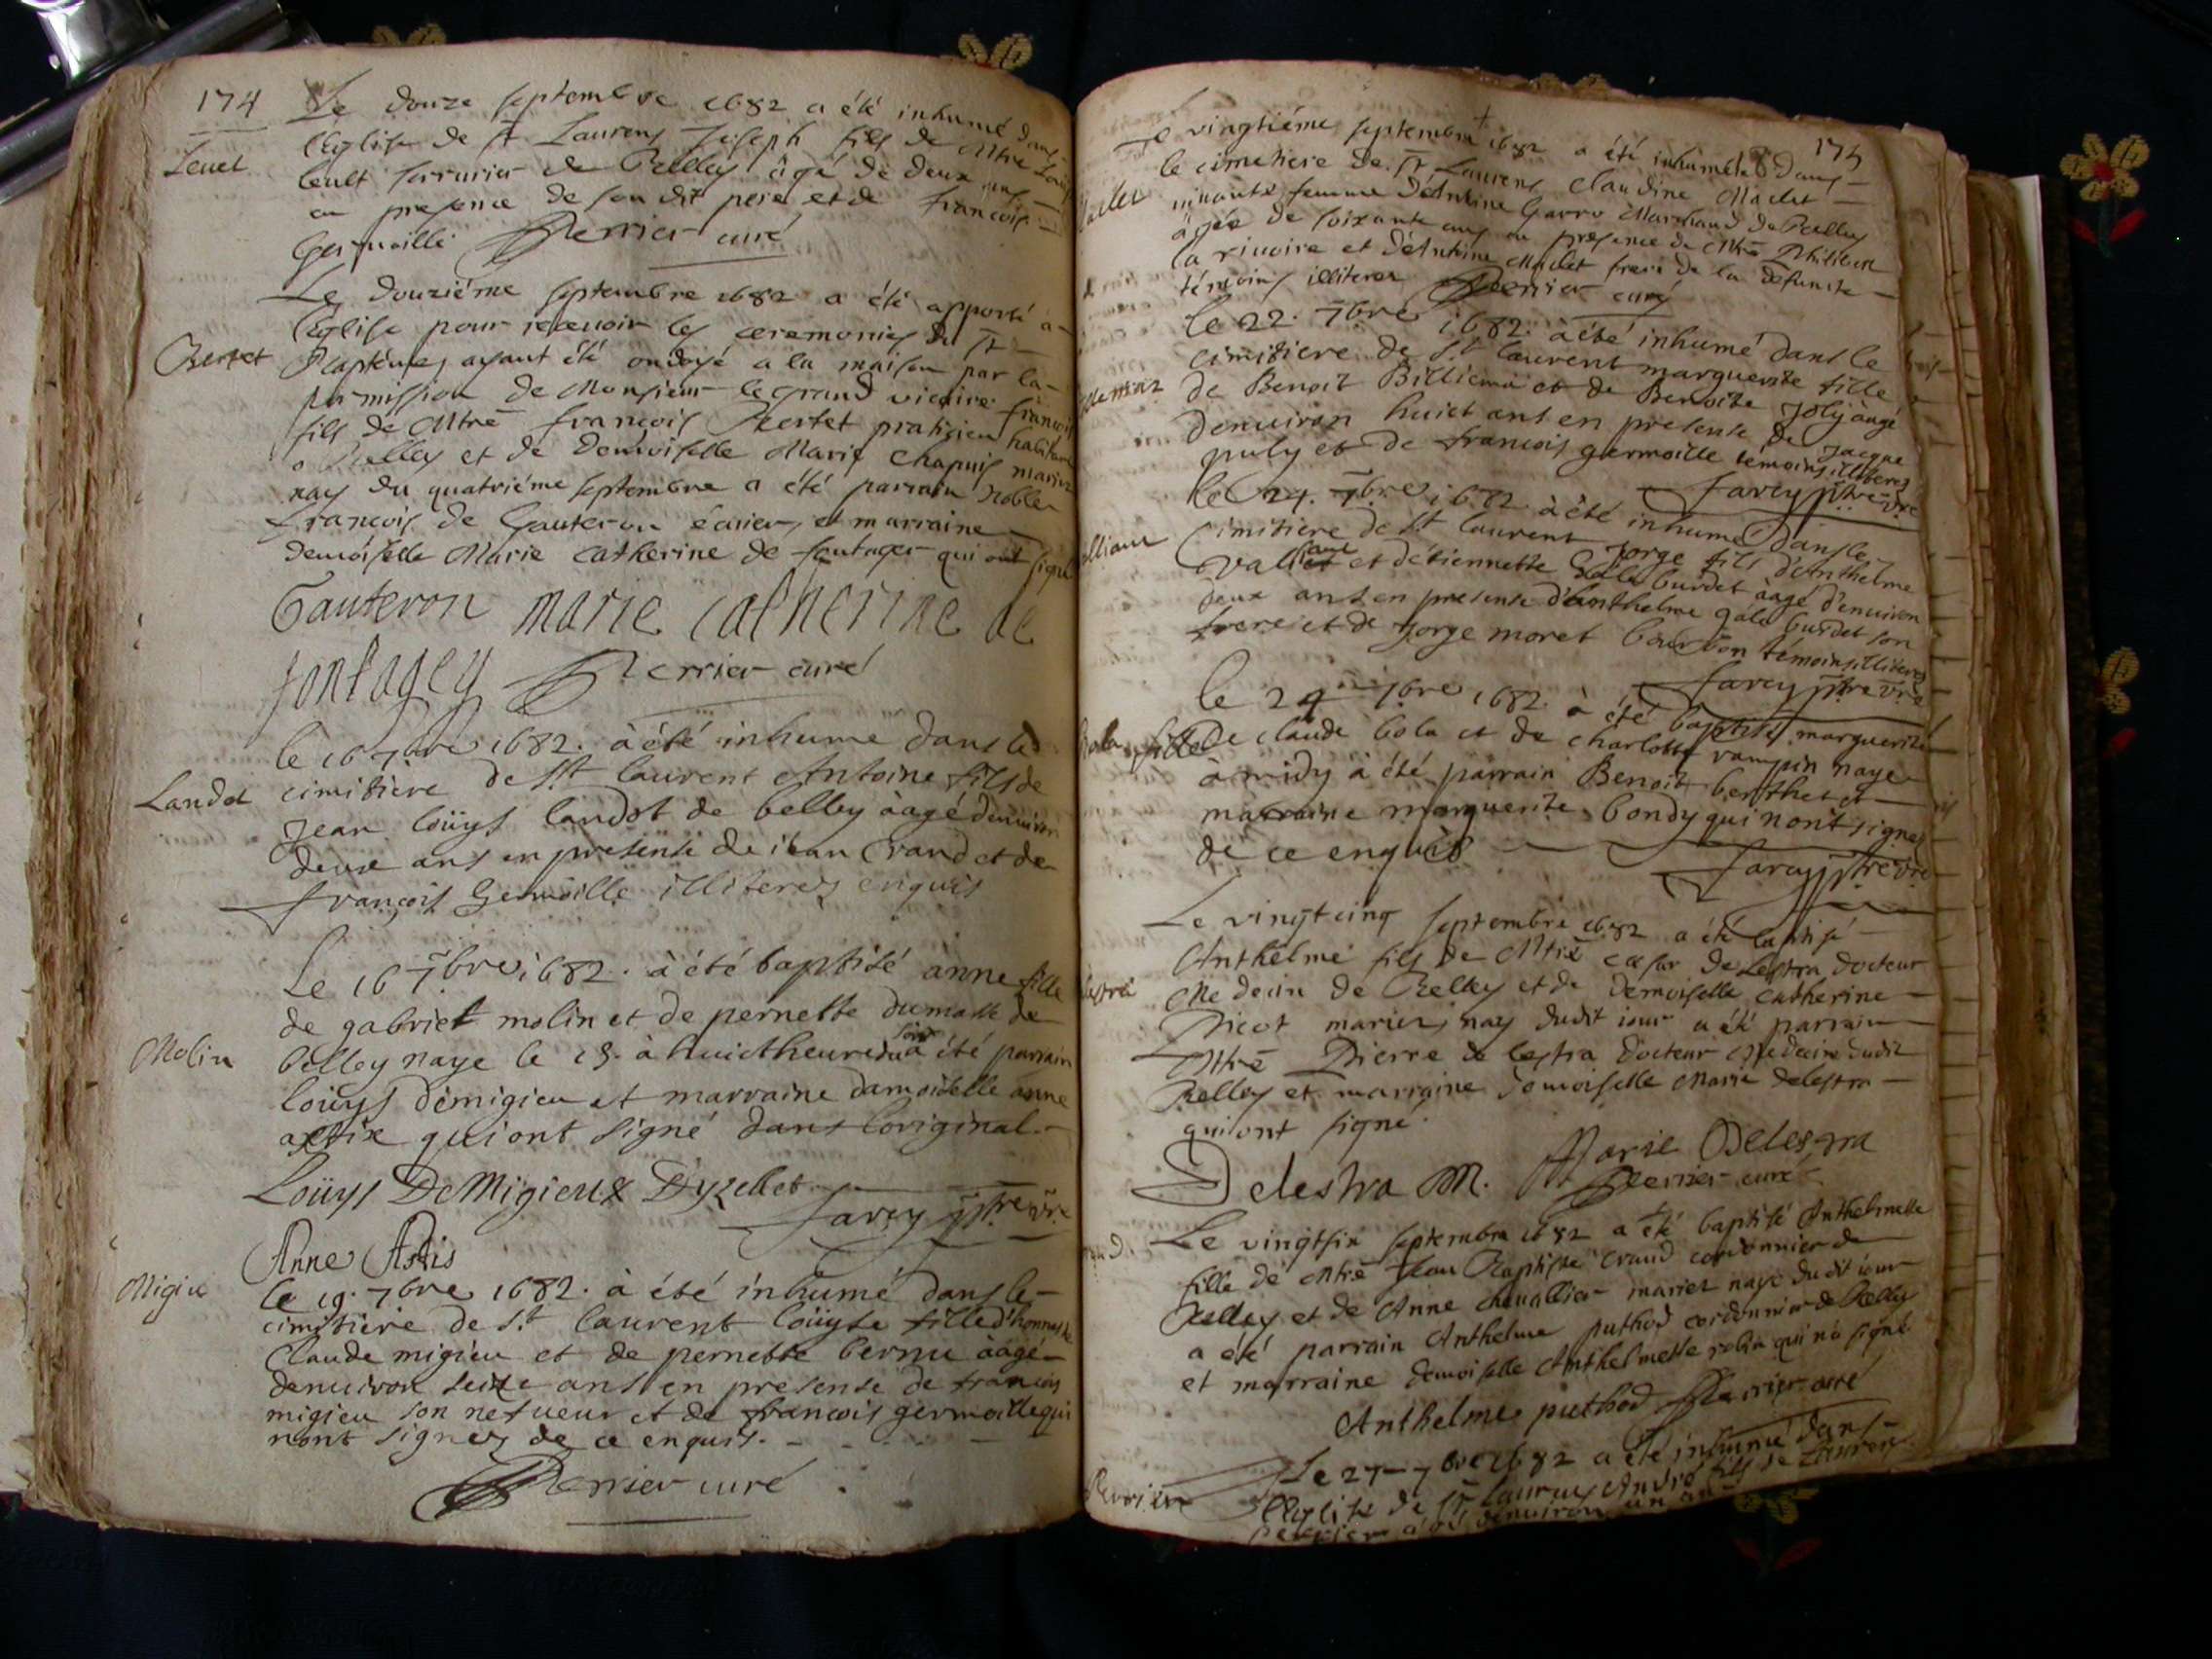 174
Le douze septembre 1682 a été inhumé dans
l'Eglise de St Laurens Joseph fils de Mtre Louis
Leuet
leult serrurier de Belley âgé de deux ans
en presence de son dit pere et de françois
Germoille Perrier curé
Le douziéme septembre 1682 a été apporté a
l'Eglise pour receuoir les ceremonies du St
Bertet
Baptême, ayant été ondoyé a la maison par la
permission de Monsieur le grand vicaire françois
fils de Mtre françois Bertet praticien habitant
a Belley et de demoiselle Marie Chapuis mariez
nay du quatriéme septembre a été parrain Noble
françois de Gauteron écuier, et marraine
demoiselle Marie Catherine de fontages qui ont signé
Gauteron Marie Catherine de
fontagey Perrier curé
le 16 7bre 1682. à été inhume dans le
Landot
cimitiere de St laurent Antoine fils de
Jean loüys landot de belley àagé denuiron
deux ans en presense de iean Crand et de
françois Germoille illiterez enquis
Le 16 7bre 1682. à été baptisé anne fille
de gabriel molin et de pernette dumolle de
Molin
belley naye le 15. à huict heures du soir à été parrain
loüys demigieu et marraine damoiselle anne
astix qui ont signé dans loriginal.
Loüys De Migieux Dyzellet
farcy ptre vre
Anne Astis
Migiu
le 19. 7bre 1682. à été inhumé dans le
cimitiere de St laurent loüyse fille d'honneste
Claude migieu et de pernette bernu àagé
denuiron seize ans en presense de françois
migieu son nefueur et de françois germoille qui
nont signez de ce enquis.
Perrier curé
175
Le vingtiéme septembre 1682 a été inhumée dans
le cimetiere de St Laurens Claudine Maclet
Maclet
femme d'Antoine Garro Marchand de Belley
âgée de soixante ans en presence de Mtre Philibert
la riuoire et d'Antoine Maclet frere de la defunte
témoins illiterez Perrier curé
le 22. 7bre 1682. à été inhumé dans le
cimitiere de St laurent marguerite fille
de Benoit Billiema et de Benoite Joly àagé
denuiron huict ans en presense de Jacque
puly et de françois germoille témoins illiterez
farcy ptre vre
le 24. 7bre 1682. à été inhumé dans le
Cimitiere de St laurent Jorge fils d'Anthelme
et d'étiennette gale burdet àagé d'enuiron
deux ans en presense d'Anthelme gale burdet son
frere et de Jorge moret bourbon temoins illiterez
farcy ptre vre
le 24 7bre 1682. à été baptisé marguerite
fille de claude bola et de charlotte rampin naye
à midy à été parrain Benoit berthet et
marraine marguerite bondy qui nont signez
de ce enquis
farcy ptre vre
Le vingtcinq septembre 1682 a été baptisé
Anthelme fils de Mtre Cæsar de Lestra docteur
Medecin de Belley et de demoiselle Catherine
Picot mariez, nay dudit iour a été parrain
Mtre Pierre de lestra docteur Medecin dudit
Belley et marraine demoiselle Marie delestra
qui ont signé.
Delestra M. Marie Delestra
Perrier curé
Le vingtsix septembre 1682 a été baptisé Anthelmette
fille de Mtre Jean Baptiste Crand cordonnier de
Belley et de Anne cheuallier mariez naye dudit iour
a été parrain Anthelme puthod cordonnier de Belley
et marraine demoiselle Anthelmette robin qui n'a signé
Anthelme puthod Perrier curé
Le 27 7bre 1682 a été inhumé dans
Perrier
l'Eglise de St Laurens André fils de Laurens
Perrier âgé denuiron un an